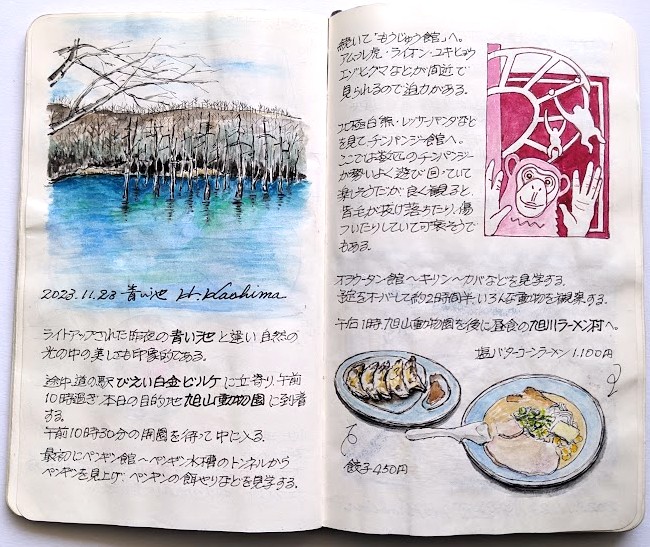 2023.11.23 青い池 H. Hashima
ライトアップされた昨夜の青い池と違い自然の
光の中の美しさも印象的である。
途中道の駅びえい白金ビルケに立寄り、午前
10時過ぎ本日の目的地 旭山動物園に到着
する。
午前10時30分の開園を待って中に入る。
最初にペンギン館〜ペンギン水槽のトンネルから
ペンギンを見上げ、ペンギンの餌やりなどを見学する。
続いて「もうじゅう館」へ。
アムール虎・ライオン・ユキヒョウ
エゾヒグマなどが間近で
見られるので迫力がある。
北極白熊・レッサーパンダなど
を見てチンパンジー館へ。
ここでは数匹のチンパンジー
が勢いよく遊び回っていて
楽しそうだが良く観ると、
背毛が抜け落ちたり、傷
ついたりしていて可哀そうで
もある。
オラウータン館〜キリン〜カバなどを見学する。
予定をオーバーして約2時間半、いろんな動物を観察する。
午后1時旭山動物園を後に昼食の旭川ラーメン村へ。
塩バターコーンラーメン 1,100円
餃子 450円